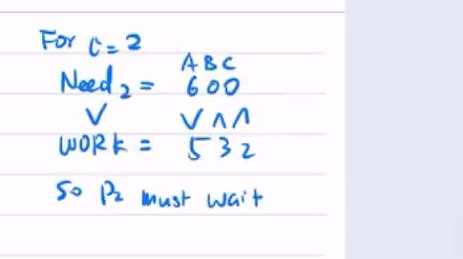 For i = 2
A B C
Need 2 = 6 0 0
V V Λ Λ
WORK = 5 3 2
So P2 must wait